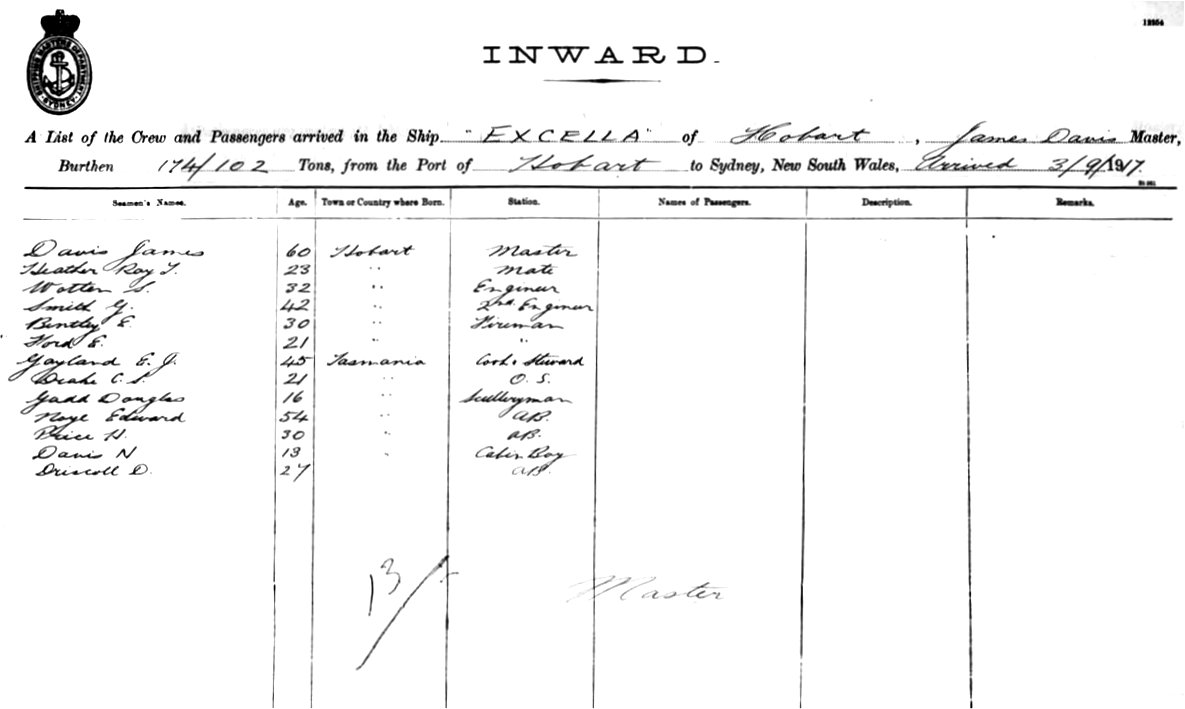 12954
SHIPPING MASTER'S DEPARTMENT SYDNEY
INWARD.
A List of the Crew and Passengers arrived in the Ship "EXCELLA" of Hobart, James Davis Master,
Burthen 174/102 Tons, from the Port of Hobart to Sydney, New South Wales, Arrived 3/9/1917.
Seamen's Names. Age. Town or Country where Born. Station. Names of Passengers. Description. Remarks.
Davis James 60 Hobart Master
Heather Roy T. 23 " Mate
Wotten S. 32 " Engineer
Smith G. 42 " 2nd Engineer
Bentley E. 30 " Fireman
Ford E. 21 " "
Gayland E. J. 45 Tasmania Cook & Steward
Drake C. S. 21 " O. S.
Gadd Douglas 16 " Sculleryman
Noye Edward 54 " AB.
Price H. 30 " AB.
Davis N 13 " Cabin Boy
Driscoll D. 27 AB.
13/
Master